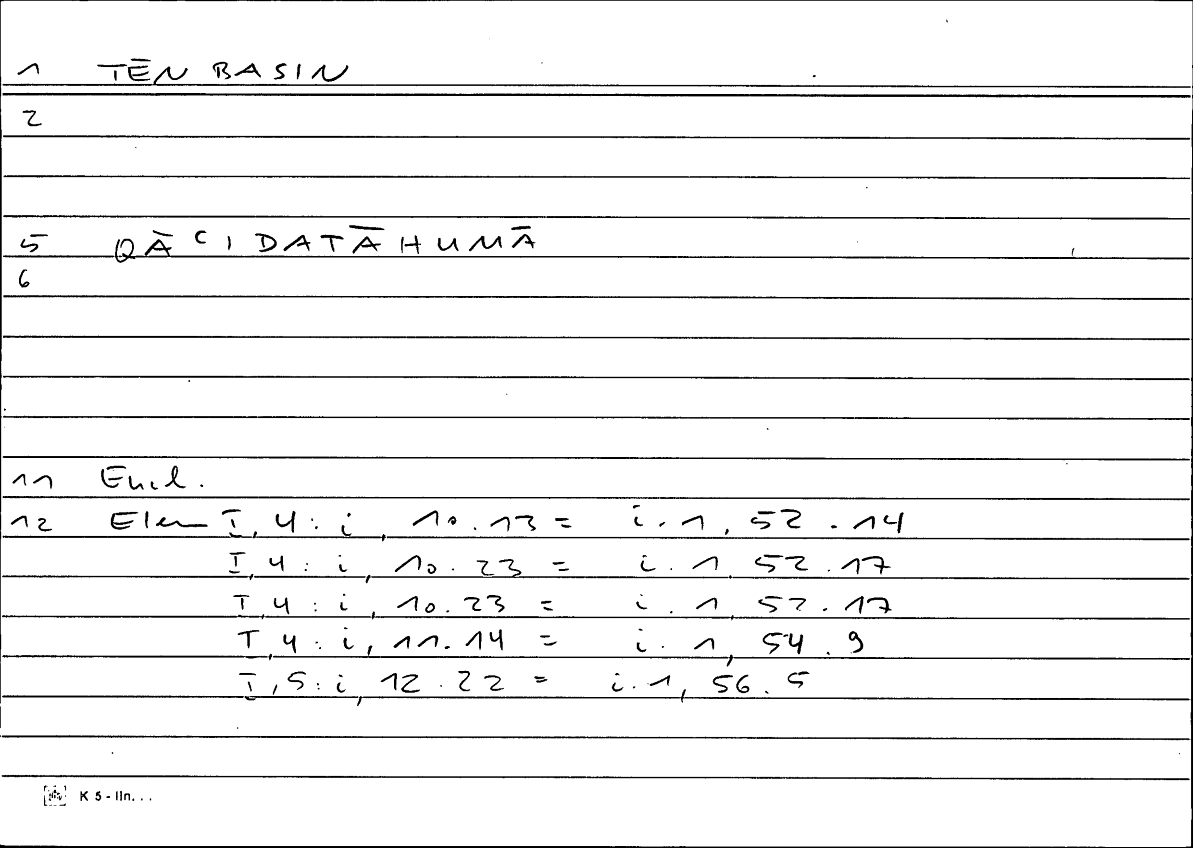 1 TĒN BASIN
2
5 QĀ ͑ I DATĀHUMĀ
6
11 Eucl.
12 Elem I, 4 : i, 10.13 = i.1, 52.14
I, 4 : i, 10.23 = i.1, 52.17
I, 4 : i, 10.23 = i.1, 52.17
I, 4 : i, 11.14 = i.1, 54.9
I, 5 : i, 12.22 = i.1, 56.5
K 5 - lin. . .